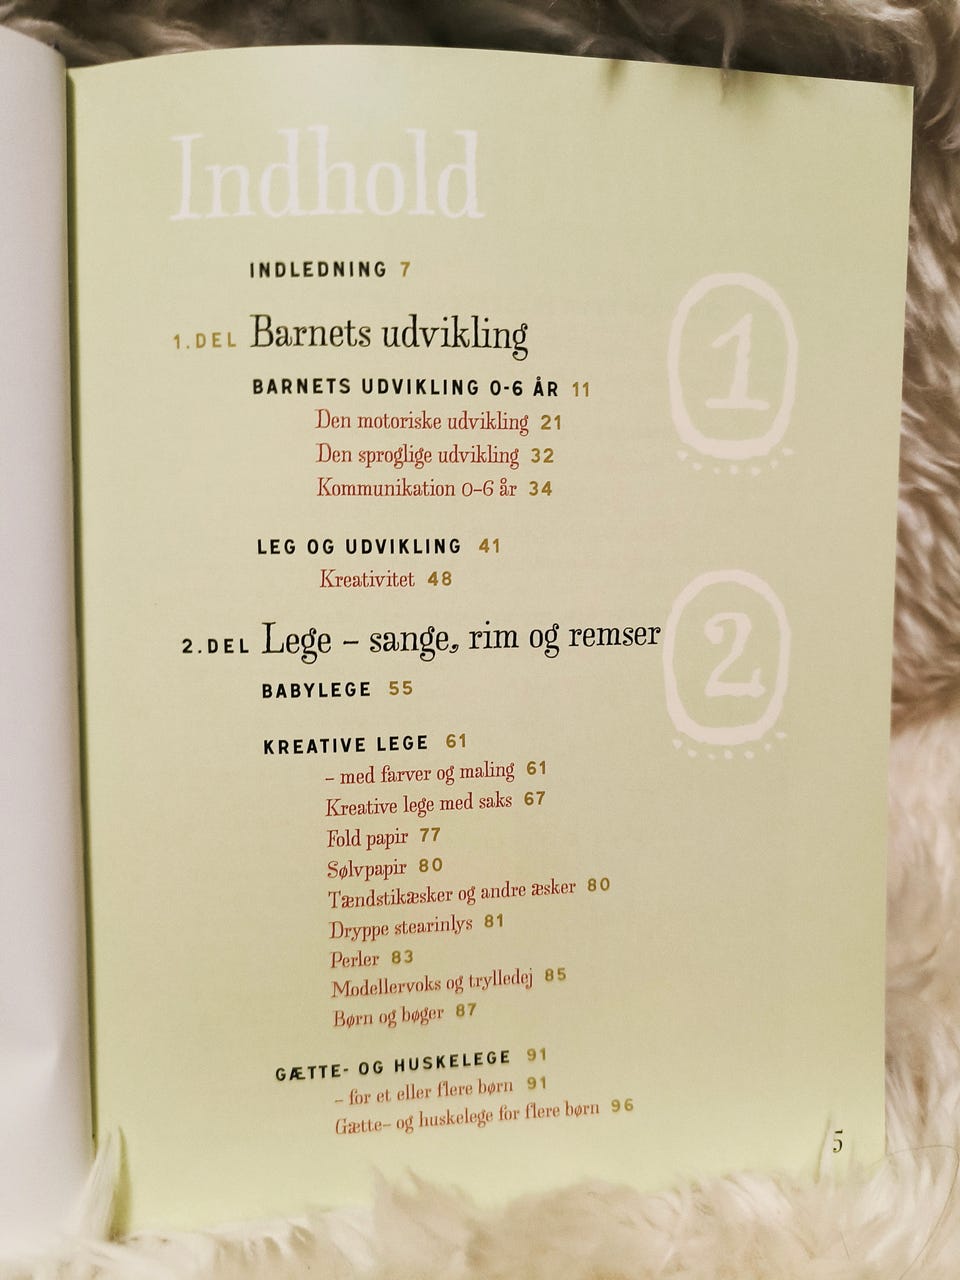 Indhold
INDLEDNING 7
1. DEL Barnets udvikling
1
BARNETS UDVIKLING 0-6 ÅR 11
Den motoriske udvikling 21
Den sproglige udvikling 32
Kommunikation 0–6 år 34
LEG OG UDVIKLING 41
Kreativitet 48
2. DEL Lege – sange, rim og remser
2
BABYLEGE 55
KREATIVE LEGE 61
– med farver og maling 61
Kreative lege med saks 67
Fold papir 77
Sølvpapir 80
Tændstikæsker og andre æsker 80
Dryppe stearinlys 81
Perler 83
Modellervoks og trylledej 85
Børn og bøger 87
GÆTTE- OG HUSKELEGE 91
– for et eller flere børn 91
Gætte– og huskelege for flere børn 96
5